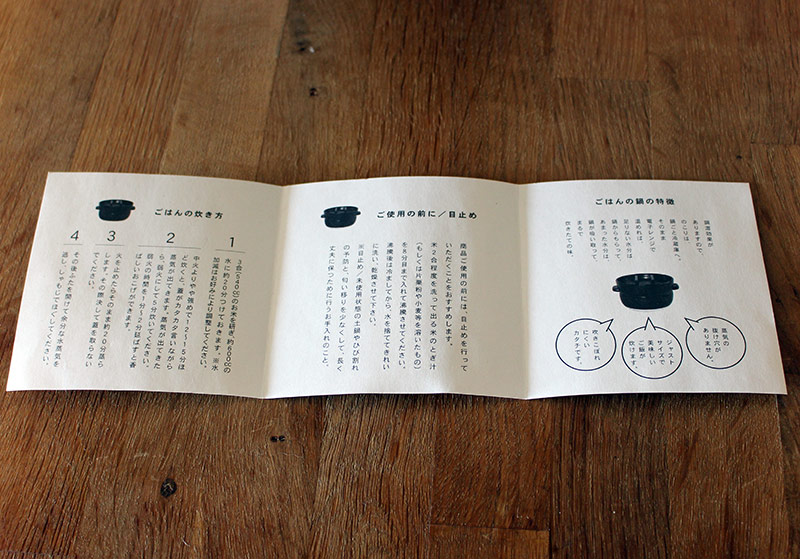 ごはんの鍋の特徴
調湿効果が
ありますので、
のこりは
鍋ごと冷蔵庫へ。
そのまま
電子レンジで
温めれば、
足りない水分は
鍋からもらって、
あまった水分は、
鍋が吸い取って、
まるで
炊きたての味。
蒸気の
抜け穴が
ありません。
ジャスト
サイズで
美味しい
ご飯が
炊けます。
吹きこぼれ
にくい
カタチです。
ご使用の前に/目止め
商品ご使用の前には、目止めを行って
いただくことをおすすめします。
米2合程度を洗って出る米のとぎ汁
(もしくは片栗粉や小麦等を溶いたもの)
を8分目まで入れて沸騰させてください。
沸騰後は冷ましてから、水を捨ててきれい
に洗い、乾燥させて下さい。
※目止め/未使用状態の土鍋やひび割れ
の予防と、匂い移りを少なくして、長く
丈夫に保つために行うお手入れのこと。
ごはんの炊き方
1
3合(540cc)のお米を研ぎ、約600ccの
水に約20分つけておきます。※水
加減はお好みにより調整してください。
2
中火よりやや強めで12〜15分ほ
ど炊くと、蓋がカタカタ言いながら
蒸気が出てきます。蒸気が出てきた
ら、弱火にして5分炊いてください。
弱火の時間を1分〜2分延ばすと香
ばしいおこげができます。
3
火を止めたらそのまま約20分蒸ら
します。その際決して蓋を取らない
でください。
4
その後ふたを開けて余分な水蒸気を
逃し、しゃもじでほぐしてください。